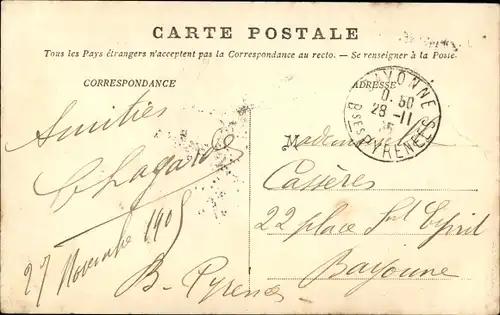 CARTE POSTALE
Tous les Pays étrangers n'acceptent pas la Correspondance au recto. — Se renseigner à la Poste.
CORRESPONDANCE
ADRESSE
BAYONNE
0.50
28 - 11
Bses PYRENEES
Amitiés
Lagarde
27 Novembre 1905
B- Pyrenees
Mademoiselle
Cassères
22 place St Esprit
Bayonne